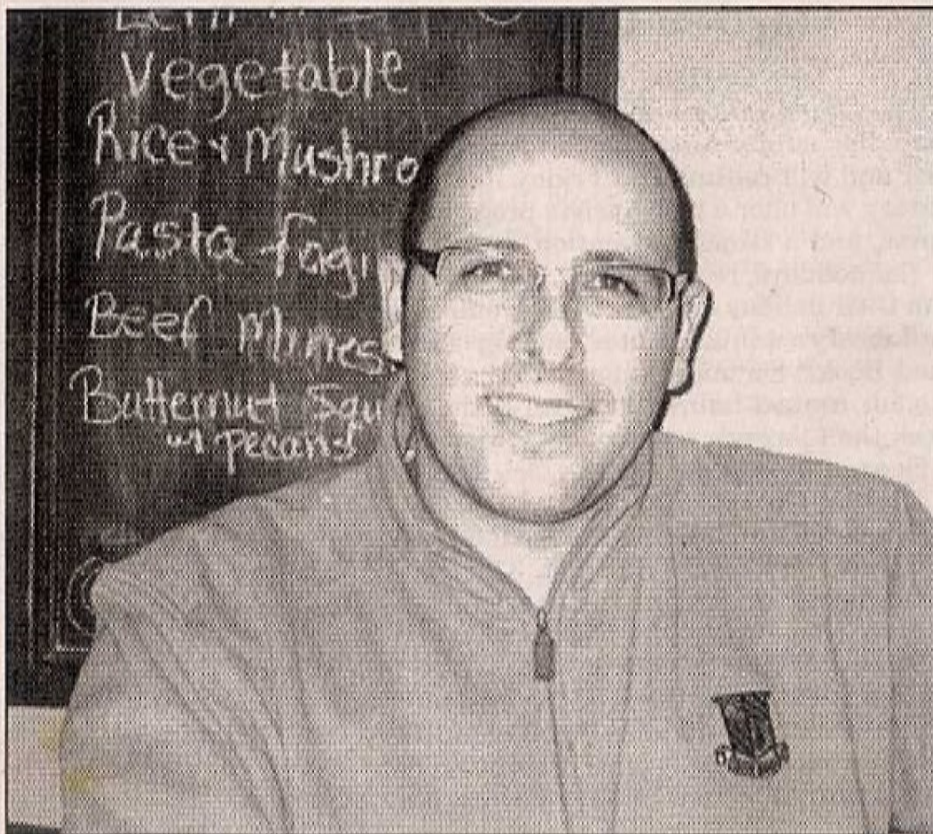 Vegetable
Rice & Mushro
Pasta fagi
Beef Mines
Butternut Squ
w pecans